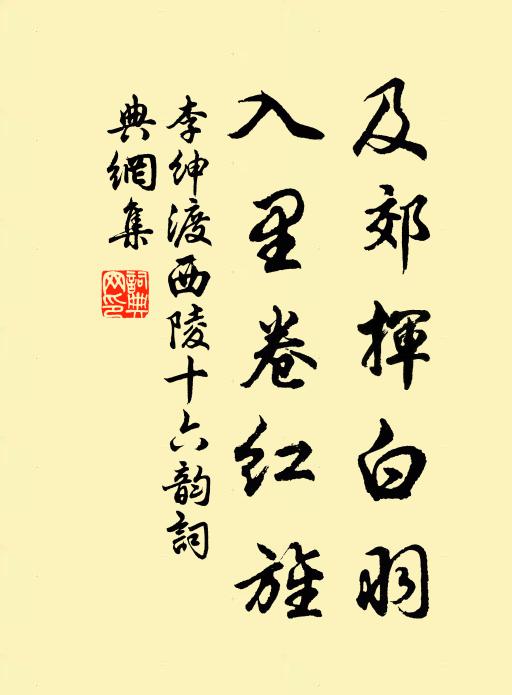 及郊揮白羽
入里卷紅旌
李紳渡西陵十六韵詞
典網集
詞典網印